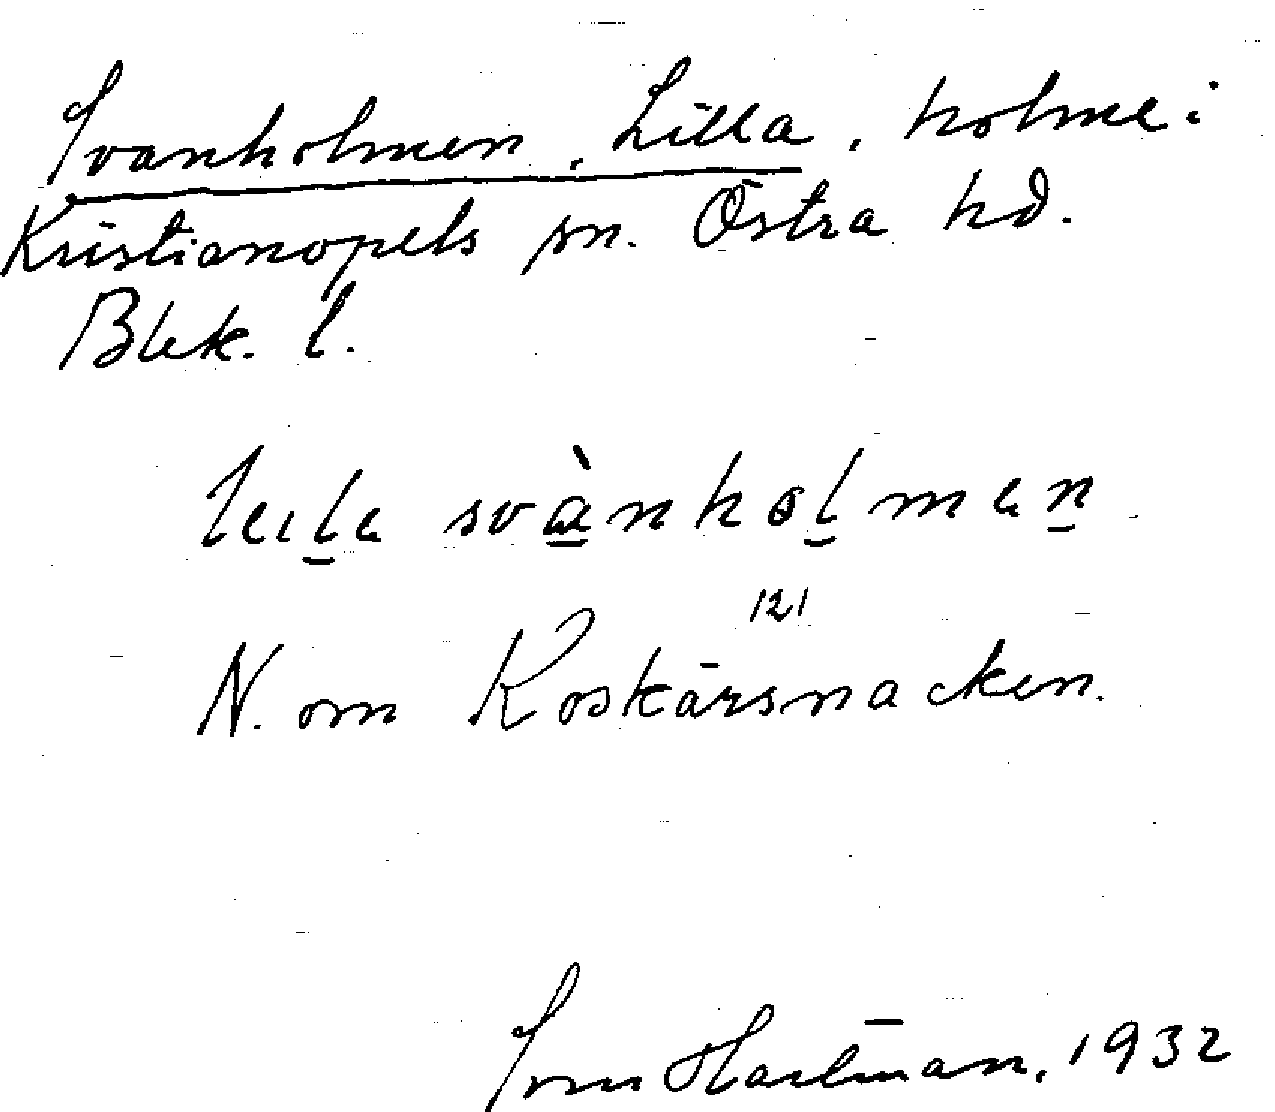 Svanholmen, Lilla, holme i
Kristianopels sn. Östra hd.
Blek. l.
svànholmen
121
N. om Roskärsnacken.
Sven Hartman, 1932